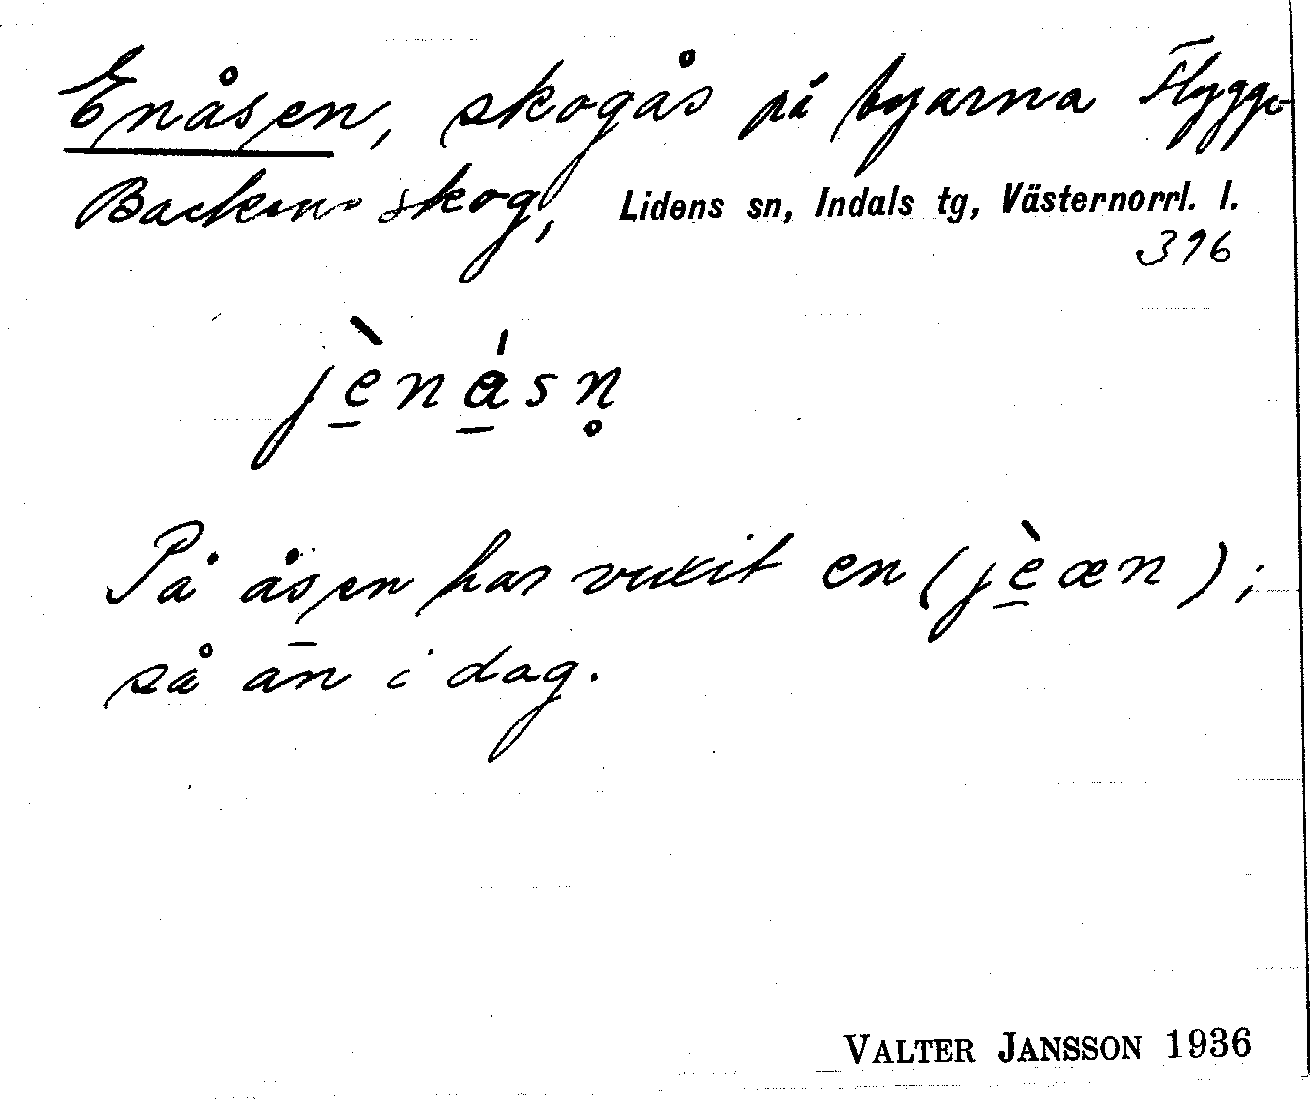 Enåsen, skogås på byarna Flygge-
Backens skog, Lidens sn, Indals tg, Västernorrl. l.
396
jènásn̥
På åsen har vuxit en (jèæn);
så än i dag.
VALTER JANSSON 1936